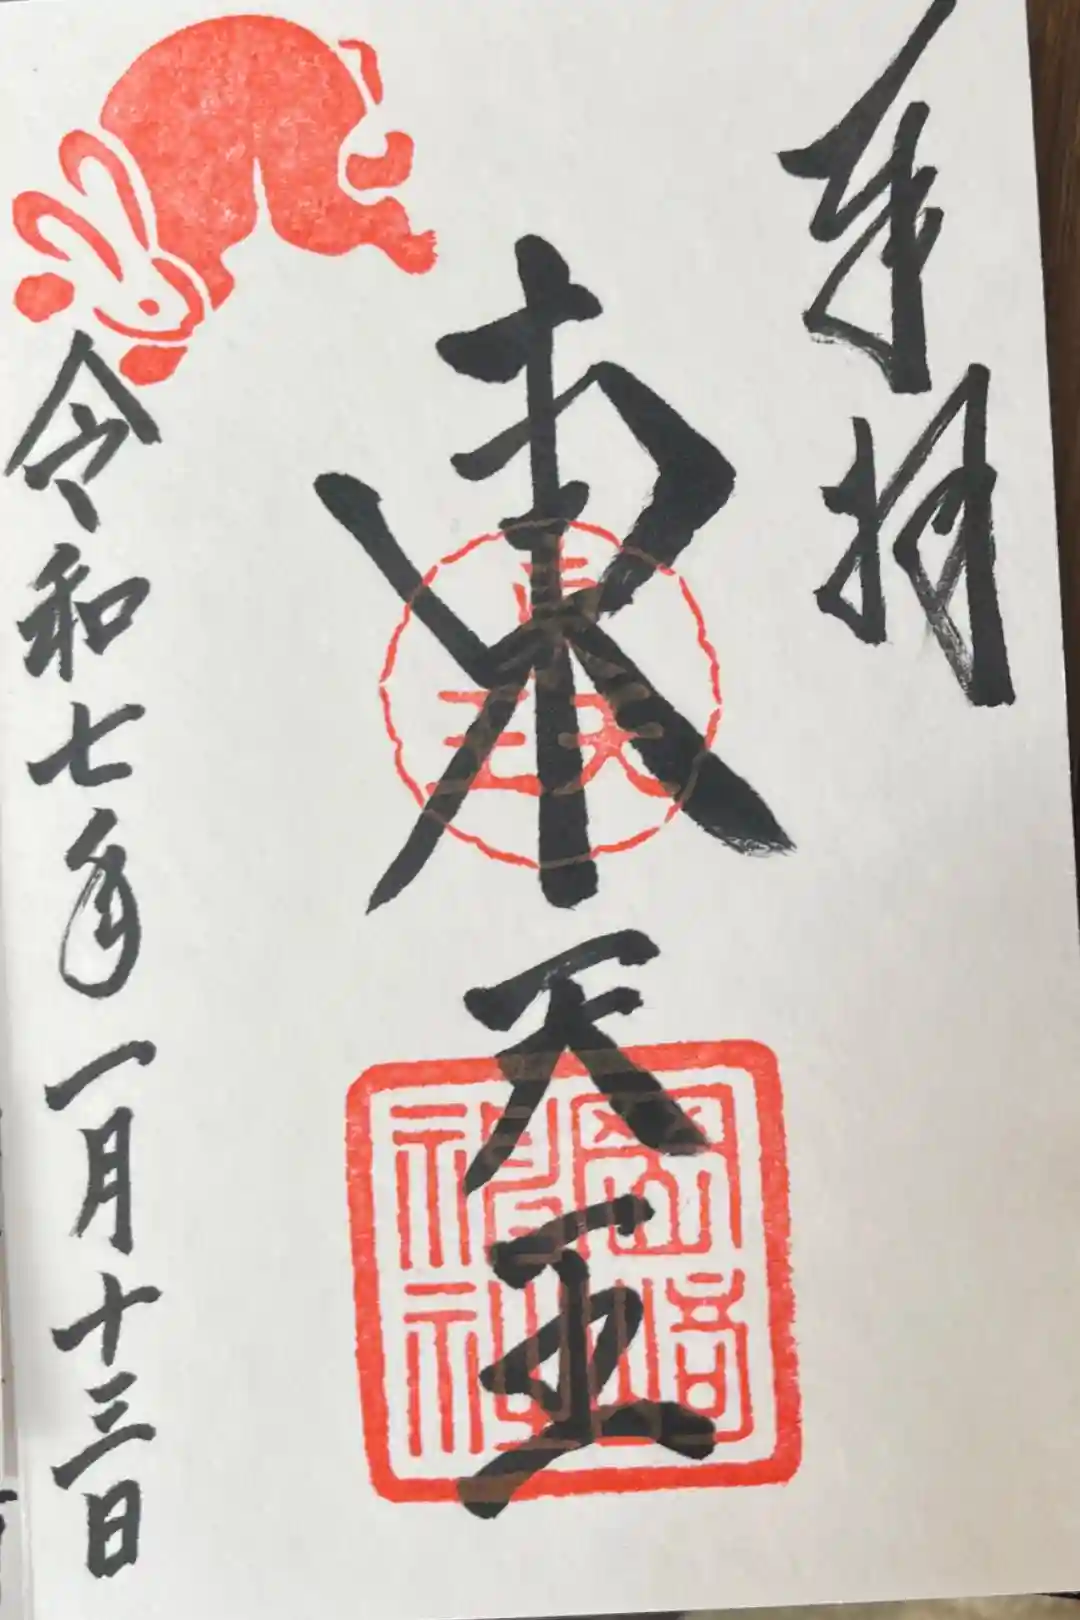 奉拝
東天王
東天王
岡崎
神社
令和七年一月十三日